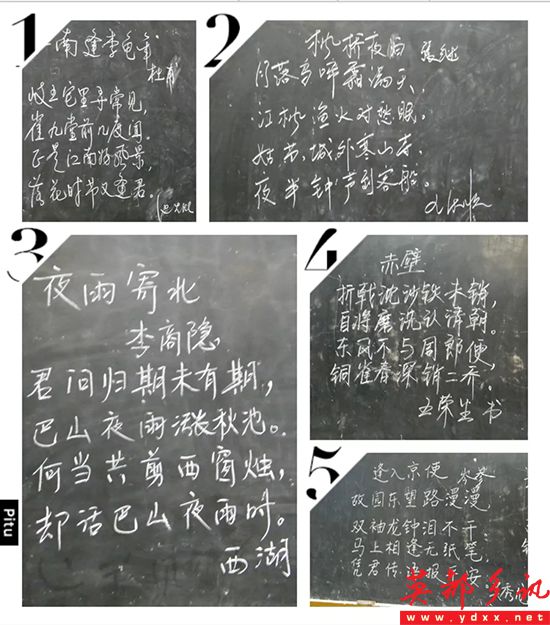 1
南逢李龟年
杜甫
岐王宅里寻常见,
崔九堂前几度闻。
正是江南好风景,
落花时节又逢君。
2
枫桥夜泊 张继
月落乌啼霜满天,
江枫渔火对愁眠,
姑苏城外寒山寺,
夜半钟声到客船。
3
夜雨寄北
李商隐
君问归期未有期,
巴山夜雨涨秋池。
何当共剪西窗烛,
却话巴山夜雨时。
西湖
4
赤壁
折戟沈沙铁未销,
自将磨洗认前朝。
东风不与周郎便,
铜雀春深锁二乔。
王荣生 书
5
逢入京使 岑参
故园东望路漫漫
双袖龙钟泪不干
马上相逢无纸笔
凭君传语报平安
Pitu
英都乡讯
www.ydxx.net